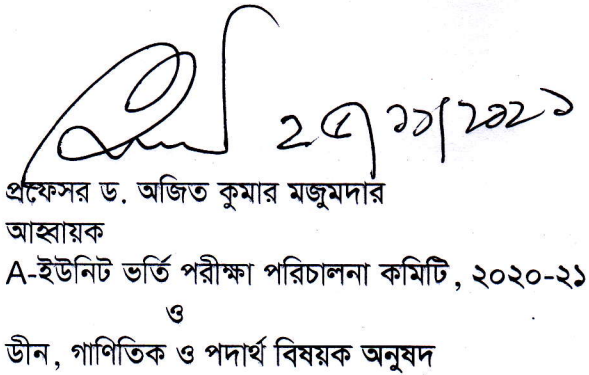 ২৫/১১/২০২১
প্রফেসর ড. অজিত কুমার মজুমদার
আহ্বায়ক
A-ইউনিট ভর্তি পরীক্ষা পরিচালনা কমিটি, ২০২০-২১
ও
ডীন, গাণিতিক ও পদার্থ বিষয়ক অনুষদ